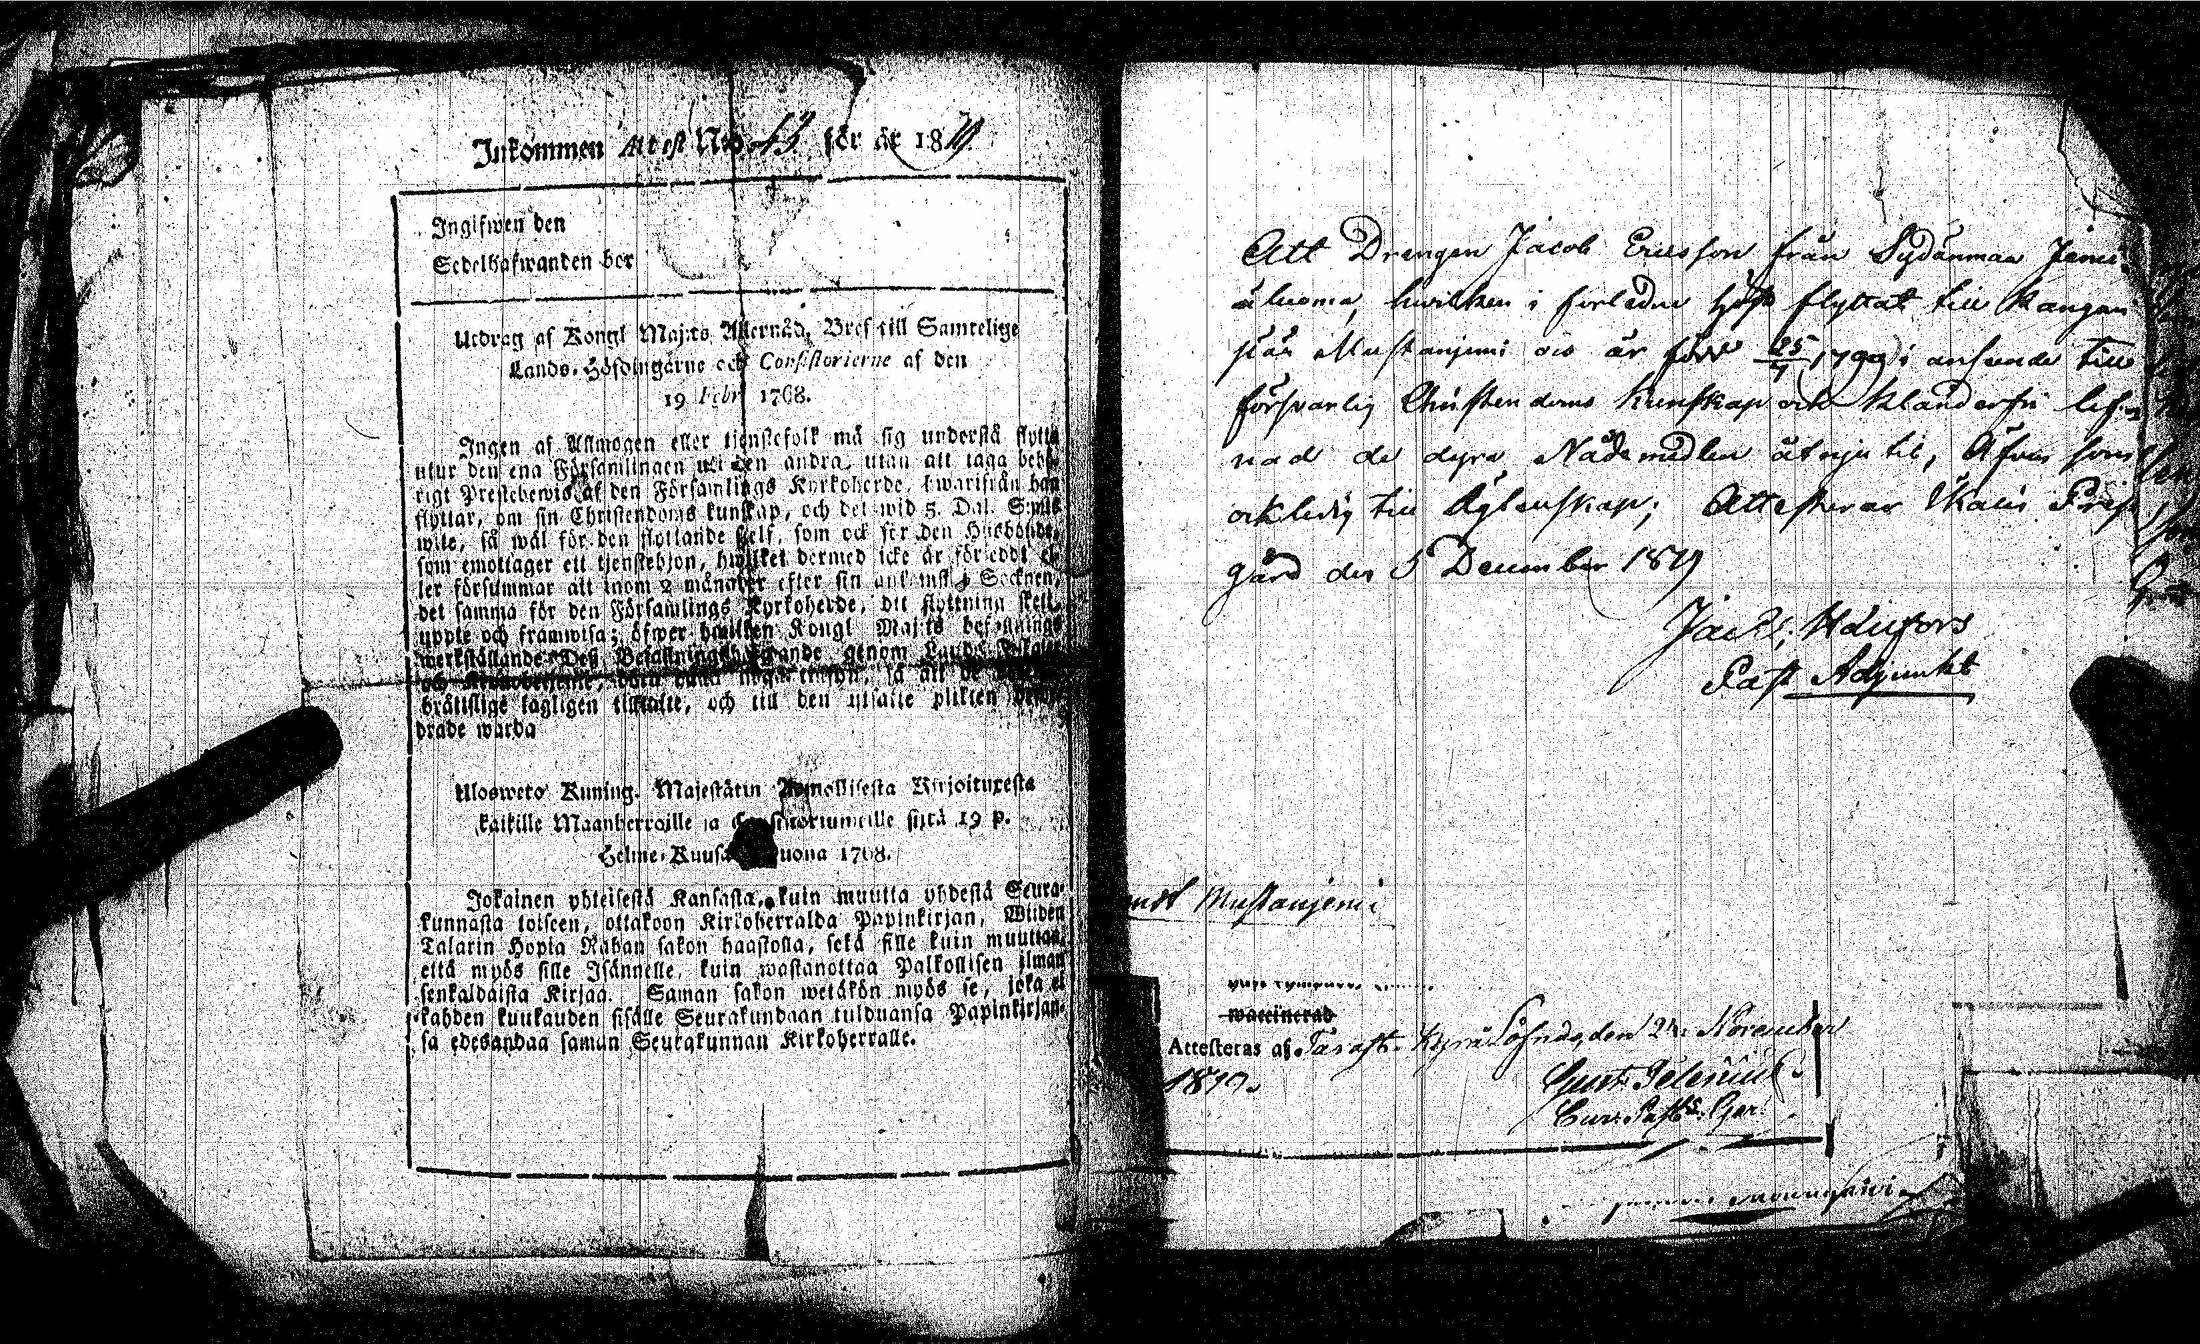 Inkommen Attest N:o 43. för år 1819.
Ingifwen den
Sedelhafwanden bor
Utdrag af Kongl Maj:ts Allernåd. Bref till Samtelige
Lands-Höfdingarne och Consistorierne af den
19 Febr 1768.
Ingen af Allmogen eller tjenstefolk må sig understå flytta
utur den ena Församlingen uti den andra, utan att taga behö-
rigt Prestebewis af den Församlings Kyrkoherde, hwarifrån han
flyttar, om sin Christendoms kunskap, och det wid 5. Dal. S:mts
wite, så wäl för den flyttande sjelf, som ock för den Husbonde,
som emottager ett tjenstehjon, hwilket dermed icke är försedt el-
ler försummar att inom 2 månader efter sin ankomst i Socknen,
det samma för den Församlings Kyrkoherde, dit flyttning skett,
uppte och framwisa; öfwer hwilken Kongl Maj:ts befallnings
werkställande Deß Befallningshafwande genom Lands
och så att de
brättslige lagligen tilltalte, och till den utsatte plikten
drade warda
Ulosweto Kuning. Majestätin Armollisesta Kirjoituxesta
kaikille Maanherroille ja Consistoriumeille siitä 19 p.
Helme-Kuusa wuona 1768.
Jokainen yhteisestä Kansasta, kuin muutta yhdestä Seura-
kunnasta toiseen, ottakoon Kirkoherralda Papinkirjan, Wiiden
Talarin Hopia Rahan sakon haastosta, sekä sille kuin muuttaa,
että myös sille Isännelle, kuin wastanottaa Palkollisen ilman
senkaldaista Kirjaa. Saman sakon wetäkön myös se, joka ei
kahden kuukauden sisälle Seurakundaan tulduansa Papinkirjan-
sa edesanhaa saman Seurakunnan Kirkoherralle.
Att Drengen Jacob Ericsson från Sydänmaa Jämi-
hwilken i förledne Höst flyttat till Kangan
pää Mustanjemi och är född 25/7 1799 i anseende till
försvarlig Christendoms Kunskap och Klanderfri lef-
nad de dyra Nådemedlen åtnjutit, Äfven som
ock ledig till Ägtenskap; Attesterar Ikalis Prest
gård den 5 December 1819
Past Adjunkt
Mustanjemi
waccinerad
Attesteras af Tavast-Kyrö den November
1819.